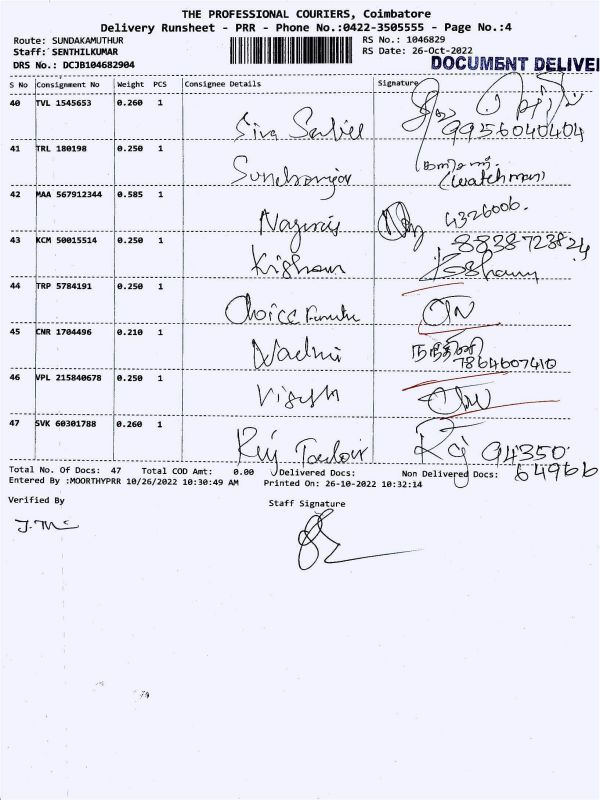 THE PROFESSIONAL COURIERS, Coimbatore
Delivery Runsheet - PRR - Phone No.:0422-3505555 - Page No.:4
Route: SUNDAKAMUTHUR RS No.: 1046829
Staff: SENTHILKUMAR RS Date: 26-Oct-2022
DRS No.: DCJB104682904 DOCUMENT DELIVE
S No Consignment No Weight PCS Consignee Details Signature
40 TVL 1545653 0.260 1
9956040404
41 TRL 180198 0.250 1
(watchman)
42 MAA 567912344 0.585 1
4326006.
43 KCM 50015514 0.250 1 8838723824
Kishan
44 TRP 5784191 0.250 1
Choice
45 CNR 1704496 0.210 1
நந்தினி
7864607410
46 VPL 215840678 0.250 1
47 SVK 60301788 0.260 1
Raj 94350
64966
Total No. Of Docs: 47 Total COD Amt: 0.00 Delivered Docs: Non Delivered Docs:
Entered By :MOORTHYPRR 10/26/2022 10:30:49 AM Printed On: 26-10-2022 10:32:14
Verified By Staff Signature